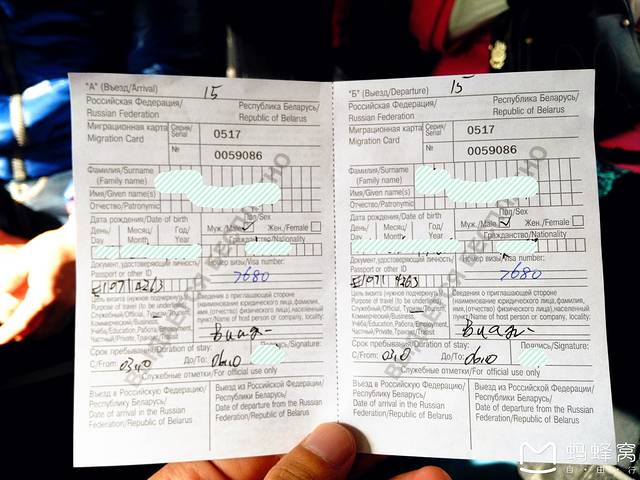 "А" (Въезд/Arrival)
15
Российская Федерация/
Russian Federation
Республика Беларусь/
Republic of Belarus
Миграционная карта
Migration Card
Серия/
Serial
0517
№
0059086
Фамилия/Surname
(Family name)
Имя/Given name(s)
Отчество/Patronymic
Дата рождения/Date of birth
Пол/Sex
День/
Day
Месяц/
Month
Год/
Year
Муж./Male
Жен./Female
Гражданство/Nationality
Документ, удостоверяющий личность/
Passport or other ID
Номер визы/Visa number:
7680
Цель визита (нужное подчеркнуть)/
Purpose of travel (to be underlined)
Служебный/Official, Туризм/
Коммерческий/Business,
Учёба/Education, Работа/
Частный/Private, Транзит/
Сведения о приглашающей стороне
(наименование юридического лица, фамилия,
имя, (отчество) физического лица), населенный
пункт/Name of host person or company, locality:
Срок пребывания/Duration of stay:
Подпись/Signature:
С/From:
До/To:
Служебные отметки/For official use only
Въезд в Российскую Федерацию/
Республику Беларусь/
Date of arrival in the Russian
Federation/Republic of Belarus
Выезд из Российской Федерации/
Республики Беларусь/
Date of departure from the Russian
Federation/Republic of Belarus
ВЫДАЕТСЯ БЕСПЛАТНО
"Б" (Выезд/Departure)
15
Российская Федерация/
Russian Federation
Республика Беларусь/
Republic of Belarus
Миграционная карта
Migration Card
Серия/
Serial
0517
№
0059086
Фамилия/Surname
(Family name)
Имя/Given name(s)
Отчество/Patronymic
Дата рождения/Date of birth
Пол/Sex
День/
Day
Месяц/
Month
Год/
Year
Муж./Male
Жен./Female
Гражданство/Nationality
Документ, удостоверяющий личность/
Passport or other ID
Номер визы/Visa number:
7680
Цель визита (нужное подчеркнуть)/
Purpose of travel (to be underlined)
Служебный/Official, Туризм/
Коммерческий/Business,
Учёба/Education, Работа/
Частный/Private, Транзит/Transit
Сведения о приглашающей стороне
(наименование юридического лица, фамилия,
имя, (отчество) физического лица), населенный
пункт/Name of host person or company, locality:
Срок пребывания/Duration of stay:
Подпись/Signature:
С/From:
До/To:
Служебные отметки/For official use only
Въезд в Российскую Федерацию/
Республику Беларусь/
Date of arrival in the Russian
Federation/Republic of Belarus
Выезд из Российской Федерации/
Республики Беларусь/
Date of departure from the Russian
Federation/Republic of Belarus
ВЫДАЕТСЯ БЕСПЛАТНО
蚂蜂窝
自·由·行